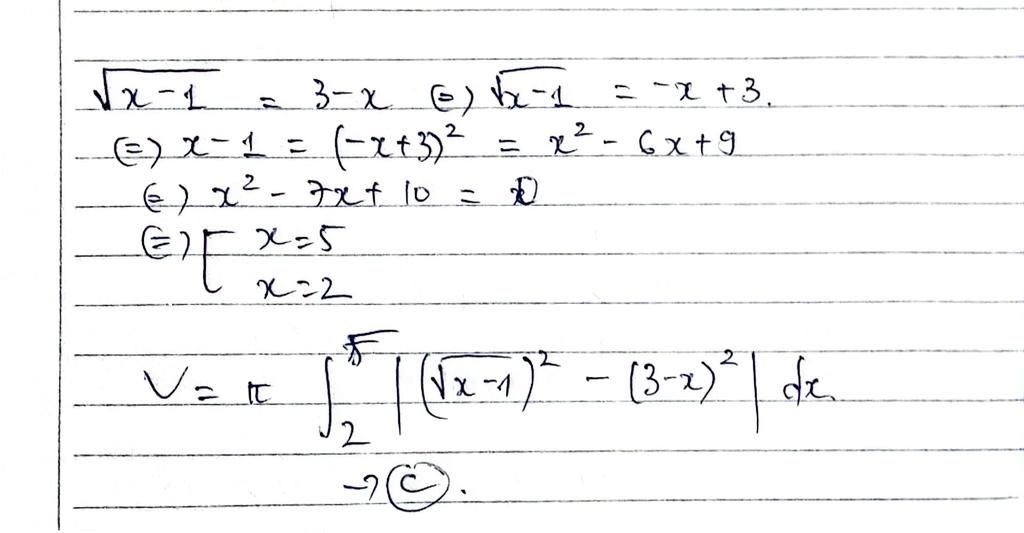 √(x-1) = 3-x ⇔ √(x-1) = -x+3.
⇔ x-1 = (-x+3)² = x² - 6x+9
⇔ x² - 7x + 10 = 0
⇔ [ x=5
x=2
V = π ∫₂⁵ |(√(x-1))² - (3-x)²| dx.
→ Ⓒ.